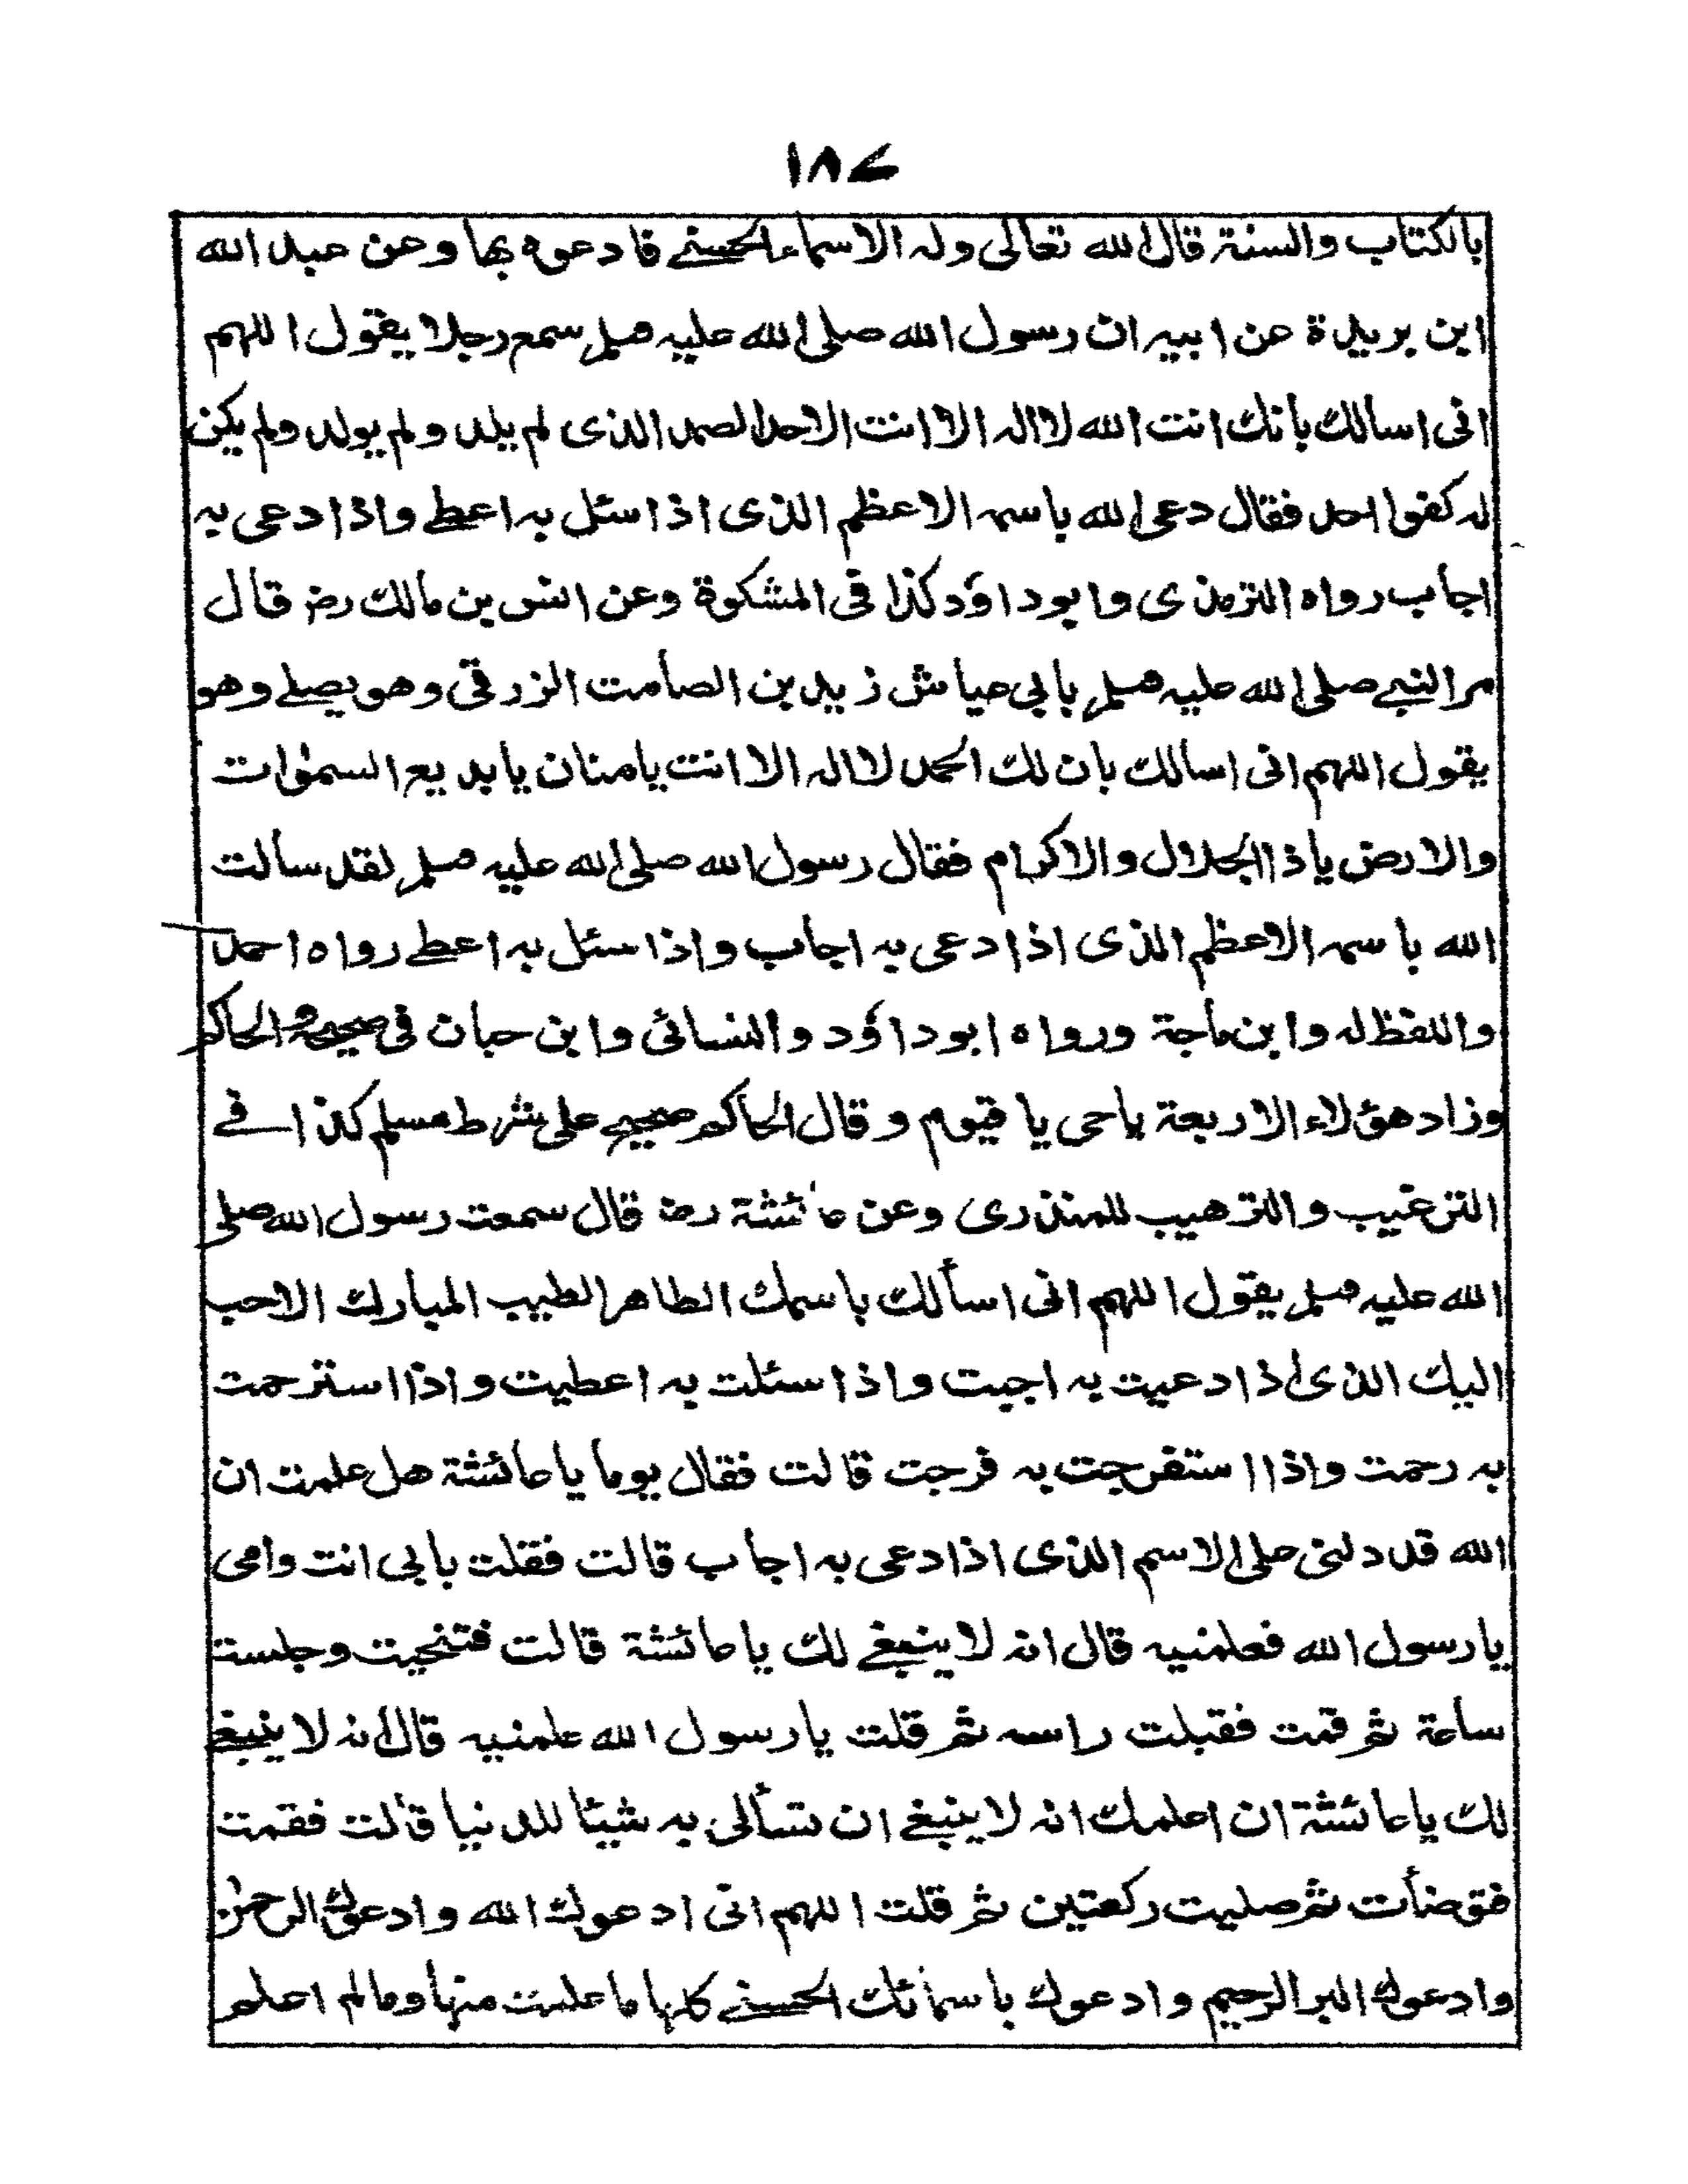 ۱۸۷
بالكتاب والسنة قال الله تعالى وله الاسماء الحسنے فادعوه بها وعن عبد الله
ابن بريدة عن ابيه ان رسول الله صلى الله عليه وسلم سمع رجلا يقول اللهم
انى اسالك بانك انت الله لا اله الا انت الاحد الصمد الذى لم يلد ولم يولد ولم يكن
له كفوا احد فقال دعى الله باسمه الاعظم الذى اذا سئل به اعطے واذا دعى به
اجاب رواه الترمذى وابوداؤد كذا فى المشكوة وعن انس بن مالك رضـ قال
مر النبے صلى الله عليه وسلم بابي عياش زيد بن الصامت الزرقى وهو يصلے وهو
يقول اللهم انى اسالك بان لك الحمد لا اله الا انت يا منان يا بديع السمٰوات
والارض ياذا الجلال والاكرام فقال رسول الله صلى الله عليه وسلم لقد سالت
الله باسمه الاعظم الذى اذا دعى به اجاب واذا سئل به اعطے رواه احمد
واللفظ له وابن ماجة ورواه ابوداؤد والنسائى وابن حبان فى صحيحه والحاكم
وزاد هؤلاء الاربعة ياحى يا قيوم وقال الحاكم صحيح على شرط مسلم كذا فے
الترغيب والترهيب للمنذرى وعن عائشة رضـ قال سمعت رسول الله صلى
الله عليه وسلم يقول اللهم انى اسألك باسمك الطاهر الطيب المبارك الاحب
اليك الذى اذا دعيت به اجبت واذا سئلت به اعطيت واذا استرحمت
به رحمت واذا استفرجت به فرجت قالت فقال يوما يا عائشة هل علمت ان
الله قد دلنى على الاسم الذى اذا دعى به اجاب قالت فقلت بابى انت وامى
يا رسول الله فعلمنيه قال انه لا ينبغے لك يا عائشة قالت فتنحيت وجلست
ساعة ثم قمت فقبلت راسه ثم قلت يا رسول الله علمنيه قال انه لا ينبغے
لك يا عائشة ان اعلمك انه لا ينبغے ان تسألى به شيئا للدنيا قالت فقمت
فتوضأت ثم صليت ركعتين ثم قلت اللهم انى ادعوك الله وادعوك الرحمٰن
وادعوك البر الرحيم وادعوك باسمائك الحسنے كلها ما علمت منها وما لم اعلم